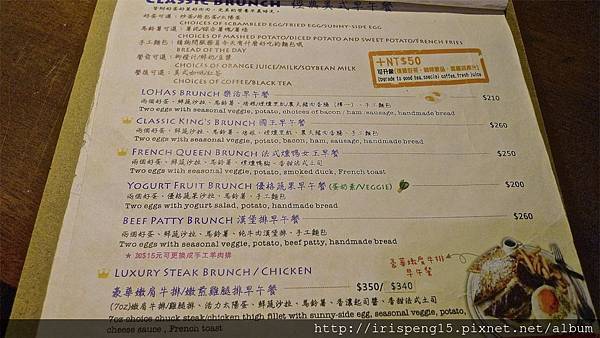 CLASSIC BRUNCH 經典美式早午餐
CHOICES OF SCRAMBLED EGG/FRIED EGG/SUNNY-SIDE EGG
CHOICES OF MASHED POTATO/DICED POTATO AND SWEET POTATO/FRENCH FRIES
BREAD OF THE DAY
CHOICES OF ORANGE JUICE/MILK/SOYBEAN MILK
CHOICES OF COFFEE/BLACK TEA
+NT$50
Upgrade to good tea, special coffee, fresh juice
LOHAS BRUNCH 樂活早午餐 $210
Two eggs with seasonal veggie, potato, choices of bacon / ham / sausage, handmade bread
CLASSIC KING'S BRUNCH 國王早午餐 $260
Two eggs with seasonal veggie, potato, bacon, ham, sausage, handmade bread
FRENCH QUEEN BRUNCH 法式燻鴨女王早午餐 $250
兩個好蛋、鮮蔬沙拉、馬鈴薯、煙燻鴨胸、香甜法式土司
Two eggs with seasonal veggie, potato, smoked duck, French toast
YOGURT FRUIT BRUNCH 優格蔬果早午餐 (蛋奶素/VEGGIE) $200
兩個好蛋、優格蔬果沙拉、馬鈴薯、手工麵包
Two eggs with yogurt salad, potato, handmade bread
BEEF PATTY BRUNCH 漢堡排早午餐 $260
兩個好蛋、鮮蔬沙拉、馬鈴薯、純牛肉漢堡排、手工麵包
Two eggs with seasonal veggie, potato, beef patty, handmade bread
★ 加$15元可更換成手工羊肉排
LUXURY STEAK BRUNCH / CHICKEN
豪華嫩肩牛排/嫩煎雞腿排早午餐 $350/ $340
(7oz)嫩肩牛排/雞腿排、活力太陽蛋、鮮蔬沙拉、馬鈴薯、香濃起司醬、香甜法式土司
7oz choice chuck steak/chicken thigh fillet with sunny-side egg, seasonal veggie, potato,
cheese sauce , French toast
豪華嫩肩牛排
早午餐
http://irispeng15.pixnet.net/album